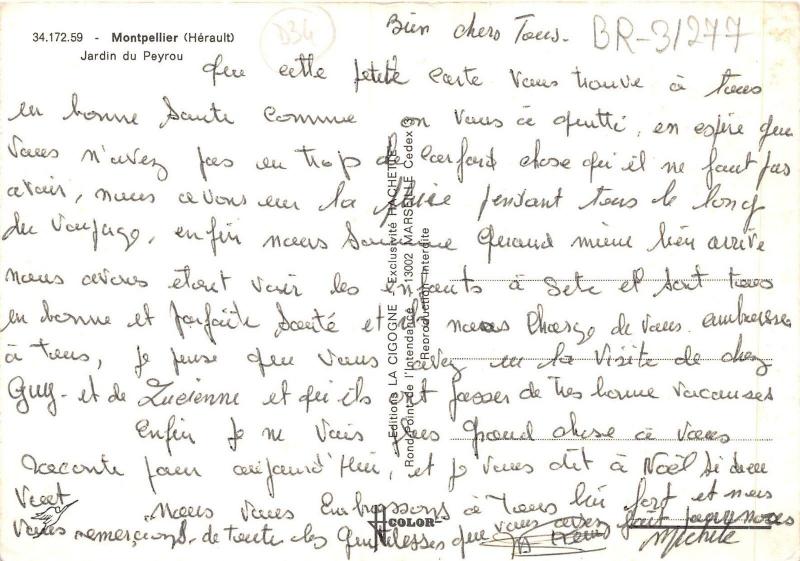 34.172.59 - Montpellier (Hérault)
Jardin du Peyrou
D34
BR-31277
Bien chers Tous.
que cette petite carte vous trouve à tous
en bonne Sante comme on vous a quitté, en espère que
vous n'avez pas eu trop de cafard chose qui il ne faut pas
avoir, nous avons eu la pluie pendant tous le long
du voyage, en fin nous somme quand même bien arrivé
nous avons etait voir les enfants à Sete et sont tous
en bonne et parfaite santé et ils nous charge de vous embrasser
à tous, je pense que vous avez eu la visite de chez
Guy - et de Lucienne et qui ils ont passer de tres bonne vacanses
Enfin je ne vais plus grand chose à vous
raconte pour aujourd'hui, et je vous dit à Noël si dieu
veut
Nous vous embrassons à Tous bien fort et nous
vous remercions de toute les gentillesses que vous avez fait pour nous
Michele
Editions LA CIGOGNE - Exclusivité HACHETTE
Rond-Point de l'Intendance - 13002 MARSEILLE Cedex 3
Reproduction Interdite
COLOR